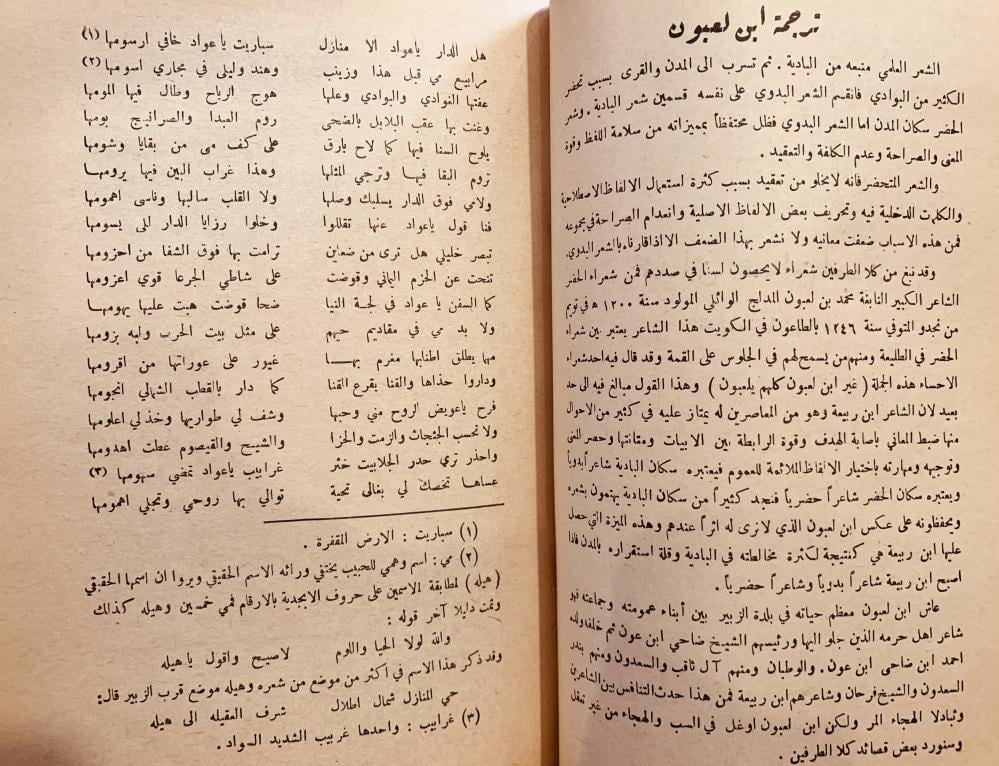 ترجمة ابن لعبون
الشعر العلمي منبعه من البادية . ثم تسرب الى المدن والقرى بسبب تحضر
الكثير من البوادي فانقسم الشعر البدوي على نفسه قسمين شعر البادية . وشعر
الحضر سكان المدن اما الشعر البدوي فظل محتفظاً بمميزاته من سلامة اللفظ وقوة
المعنى والصراحة وعدم الكلفة والتعقيد .
والشعر المتحضر فانه لايخلو من تعقيد بسبب كثرة استعمال الالفاظ الاصطلاحية
والكلمات الدخلية فيه وتحريف بعض الالفاظ الاصلية وانعدام الصراحة في مجموعه
فمن هذه الاسباب ضعفت معانيه ولا نشعر بهذا الضعف الا اذا قارناه بالشعر البدوي.
وقد نبغ من كلا الطرفين شعراء لايحصون لسنا في صددهم فمن شعراء الحضر
الشاعر الكبير النابغة محمد بن لعبون المدلج الوائلي المولود سنة ١٢٠٠ ه في ثويم
من نجدو المتوفي سنة ١٢٤٦ بالطاعون في الكويت هذا الشاعر يعتبر بين شعراء
الحضر في الطليعة ومنهم من يسمح لهم في الجلوس على القمة وقد قال فيه احد شعراء
الاحساء هذه الجملة ( غير ابن لعبون كلهم يلعبون ) وهذا القول مبالغ فيه الى حد
بعيد لان الشاعر ابن ربيعة وهو من المعاصرين له يمتاز عليه في كثير من الاحوال
منها ضبط المعاني بأصابة الهدف وقوة الرابطة بين الابيات ومتانتها وحصر المعنى
وتوجيهه ومهارته باختيار الالفاظ الملائمة للعموم فيعتبره سكان البادية شاعراً بدوياً
ويعتبره سكان الحضر شاعراً حضرياً فنجد كثيراً من سكان البادية يهتمون بشعره
ويحفظونه على عكس ابن لعبون الذي لانرى له اثراً عندهم وهذه الميزة التي حصل
عليها ابن ربيعة هي كنتيجة لكثرة مخالطته في البادية وقلة استقراره بالمدن فلذا
اصبح ابن ربيعة شاعراً بدوياً وشاعراً حضرياً .
عاش ابن لعبون معظم حياته في بلدة الزبير بين أبناء عمومته وجماعته فهو
شاعر اهل حرمه الذين جلو اليها ورئيسهم الشيخ ضاحي ابن عون ثم خلفه ولده
احمد ابن ضاحي ابن عون. والوطبان ومنهم آل ثاقب والسعدون ومنهم بندر
السعدون والشيخ فرحان وشاعرهم ابن ربيعة فمن هذا حدث التنافس بين الشاعرين
وتبادلا الهجاء المر ولكن ابن لعبون اوغل في السب والهجاء من غير تعقل
وسنورد بعض قصائد كلا الطرفين .
هل الدار ياعواد الا منازل سباريت ياعواد خافي ارسومها (١)
مرابيع مي قبل هذا وزينب وهند وليلى في مجاري اسومها (٢)
عفتها الغوادي والبوادي وعلها هوج الرياح وطال فيها المومها
وغنت بها عقب البلابل بالضحى روم العبدا والصرانيج بومها
يلوح السنا فيها كما لاح بارق على كف مى من بقايا وشومها
تروم البقا فيها وترجي المثلها وهذا غراب البين فيها يرومها
ولامي فوق الدار يسليك وصلها ولا القلب سالبها وناسى اهمومها
فنا قول ياعواد عنها تقللوا وخلوا رزايا الدار للي يسومها
تبصر خليلي هل ترى من ضعاين ترامت بها فوق الشفا من احزومها
تنحت عن الحزم الياني وقوضت على شاطي الجرعا قوي اعزومها
كما السفن يا عواد في لجة النيا ضحا قوضت هبت عليها يهومها
ولا بد مي في مقاديم حيهم على مثل بيت الحرب وابه بزومها
مها يطلق اطنابها مغرم بها غيور على عوراتها من اقرومها
وداروا حذاها والقنا يقرع القنا كما دار بالقطب الشمالي انجومها
فرح ياعويض الروح مني وحبها وشف لي طواريها وخذلي اعلومها
ولا تحسب الجثجاث والزمت والخزا والشيح والقيصوم عطت اهدومها
واحذر تري حدر الجلابيت خثر غرابيب ياعواد تمضي سهومها (٣)
عساها تخصك لي بغالى تحية توالي بها روحي وتجلي اهمومها
(١) سباريت : الارض المقفرة .
(٢) مي: اسم وهمي للحبيب يختفي ورائه الاسم الحقيقي ويروا ان اسمها الحقيقي
(هيله) لمطابقة الاسمين على حروف الابجدية بالارقام فمي خمسين وهيله كذلك
وثمت دايلا آخر قوله :
والله لولا الحيا واللوم لاصيح واقول ياهيله
وقد ذكر هذا الاسم في اكثر من موضع من شعره وهيله موضع قرب الزبير قال:
حي المنازل شمال اطلال شرف العقيله الى هيله
(٣) غرابيب : واحدها غربيب الشديد السواد .